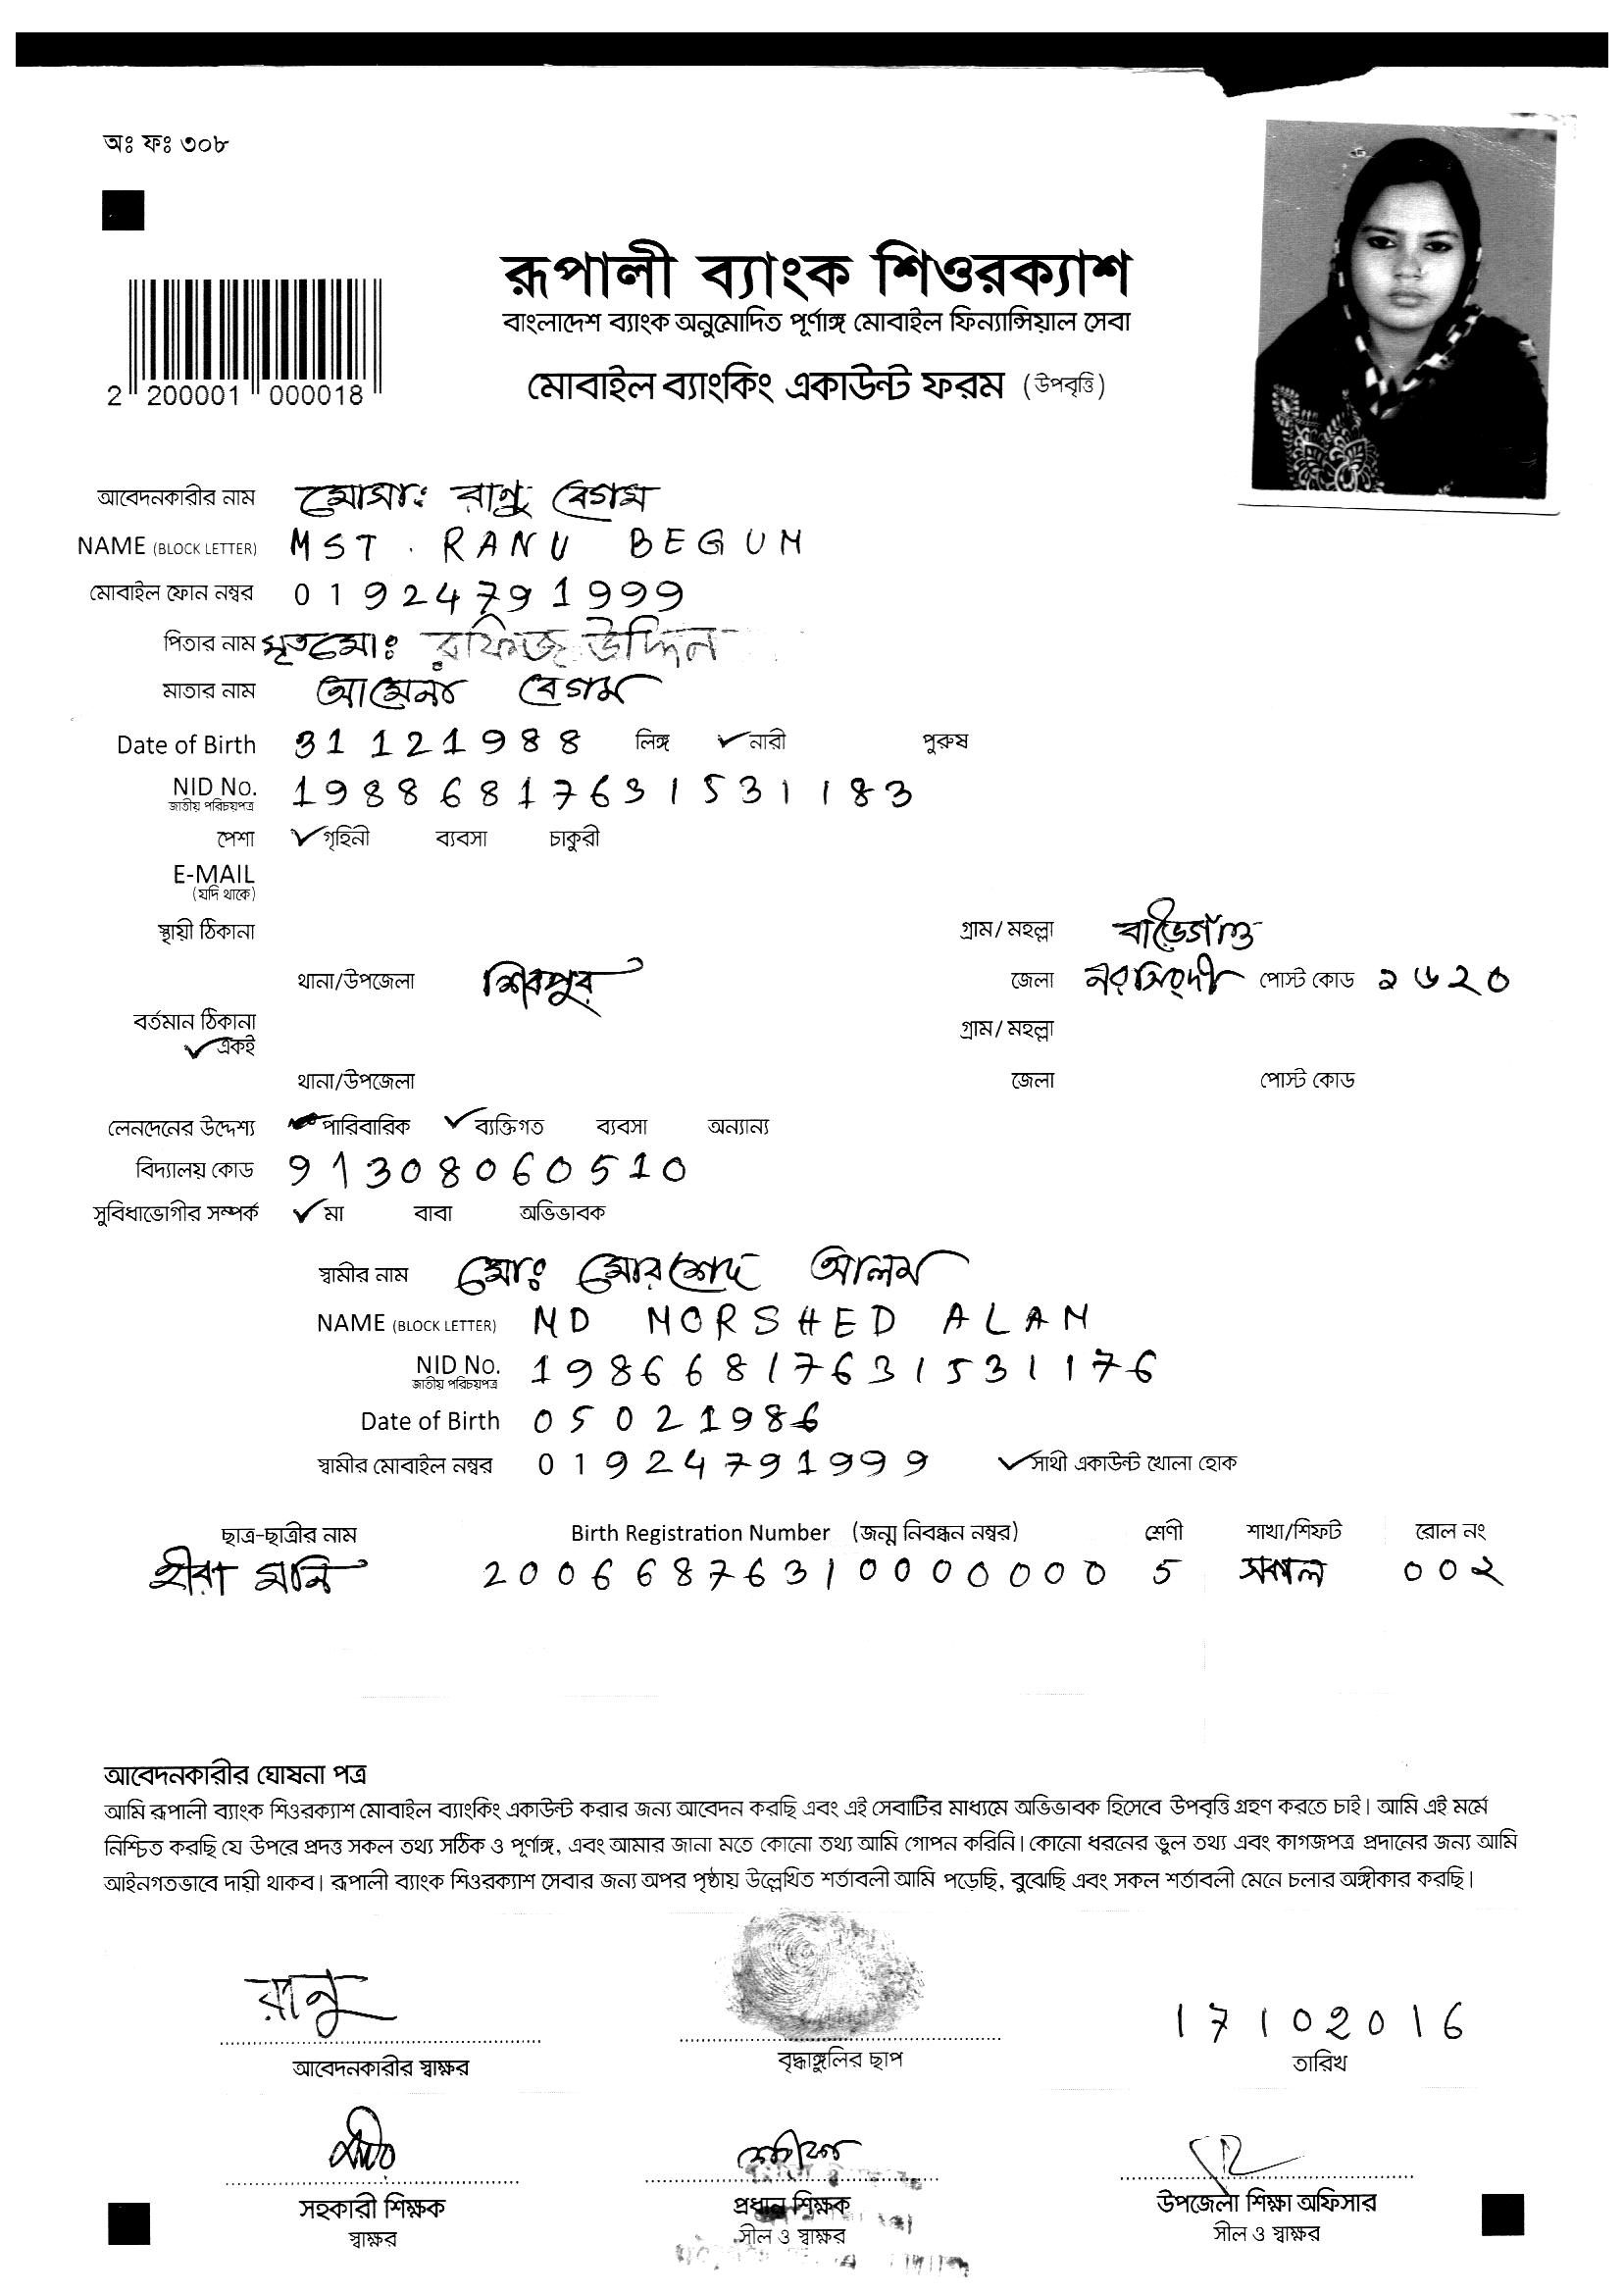 অঃ ফঃ ৩০৮
রূপালী ব্যাংক শিওরক্যাশ
বাংলাদেশ ব্যাংক অনুমোদিত পূর্ণাঙ্গ মোবাইল ফিন্যান্সিয়াল সেবা
মোবাইল ব্যাংকিং একাউন্ট ফরম (উপবৃত্তি)
2 200001 000018
আবেদনকারীর নাম মোসাঃ রানু বেগম
NAME (BLOCK LETTER) MST. RANU BEGUM
মোবাইল ফোন নম্বর 01924791999
পিতার নাম মৃতমোঃ রফিজ উদ্দিন
মাতার নাম আমেনা বেগম
Date of Birth 31 12 1988 লিঙ্গ ✓নারী পুরুষ
NID No. 19886817631531183
জাতীয় পরিচয়পত্র
পেশা ✓গৃহিনী ব্যবসা চাকুরী
E-MAIL
(যদি থাকে)
স্থায়ী ঠিকানা গ্রাম/ মহল্লা
থানা/উপজেলা শিবপুর জেলা নরসিংদী পোস্ট কোড ১৬২০
বর্তমান ঠিকানা গ্রাম/ মহল্লা
✓একই
থানা/উপজেলা জেলা পোস্ট কোড
লেনদেনের উদ্দেশ্য পারিবারিক ✓ব্যক্তিগত ব্যবসা অন্যান্য
বিদ্যালয় কোড 91308060510
সুবিধাভোগীর সম্পর্ক ✓মা বাবা অভিভাবক
স্বামীর নাম মোঃ মোরশেদ আলম
NAME (BLOCK LETTER) MD MORSHED ALAM
NID No. 19866817631531176
জাতীয় পরিচয়পত্র
Date of Birth 05021986
স্বামীর মোবাইল নম্বর 01924791999 ✓সাথী একাউন্ট খোলা হোক
ছাত্র-ছাত্রীর নাম Birth Registration Number (জন্ম নিবন্ধন নম্বর) শ্রেণী শাখা/শিফট রোল নং
হীরা মনি 20066876310000000 5 সকাল ০০২
আবেদনকারীর ঘোষনা পত্র
আমি রূপালী ব্যাংক শিওরক্যাশ মোবাইল ব্যাংকিং একাউন্ট করার জন্য আবেদন করছি এবং এই সেবাটির মাধ্যমে অভিভাবক হিসেবে উপবৃত্তি গ্রহণ করতে চাই। আমি এই মর্মে
নিশ্চিত করছি যে উপরে প্রদত্ত সকল তথ্য সঠিক ও পূর্ণাঙ্গ, এবং আমার জানা মতে কোনো তথ্য আমি গোপন করিনি। কোনো ধরনের ভুল তথ্য এবং কাগজপত্র প্রদানের জন্য আমি
আইনগতভাবে দায়ী থাকব। রূপালী ব্যাংক শিওরক্যাশ সেবার জন্য অপর পৃষ্ঠায় উল্লেখিত শর্তাবলী আমি পড়েছি, বুঝেছি এবং সকল শর্তাবলী মেনে চলার অঙ্গীকার করছি।
রানু 17102016
আবেদনকারীর স্বাক্ষর বৃদ্ধাঙ্গুলির ছাপ তারিখ
সহকারী শিক্ষক প্রধান শিক্ষক উপজেলা শিক্ষা অফিসার
স্বাক্ষর সীল ও স্বাক্ষর সীল ও স্বাক্ষর